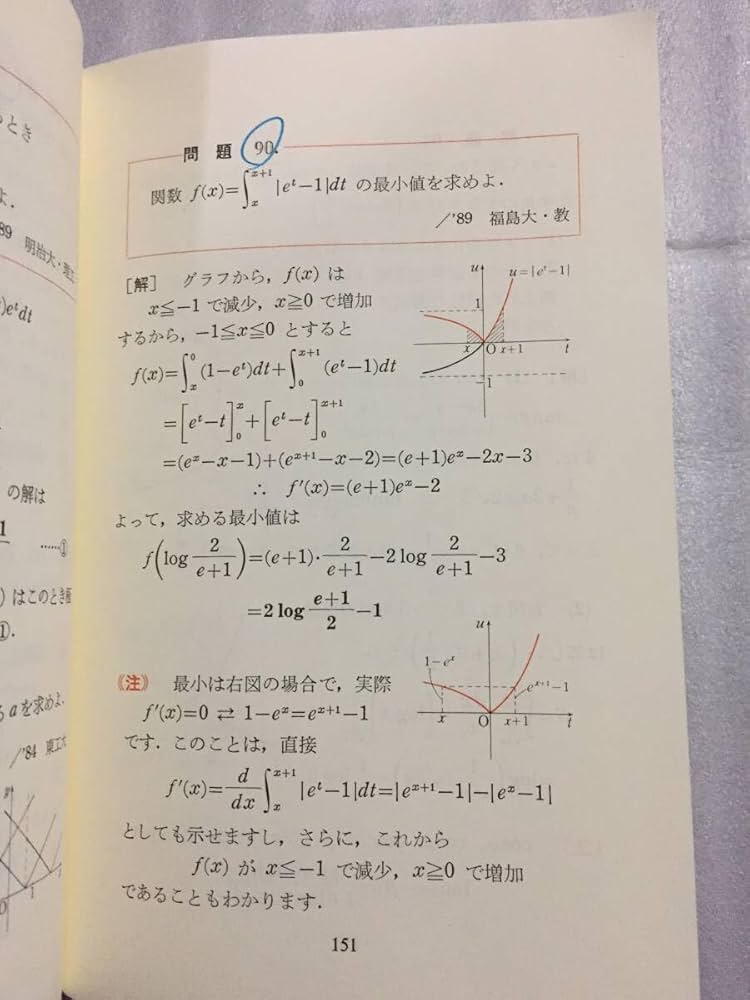 とき
よ.
89 明治大・理工
)e^t dt
の解は
1
……①
) はこのとき極
①.
る a を求めよ.
/'84 東工大
問題 90.
関数 f(x)=∫_x^{x+1} |e^t−1|dt の最小値を求めよ.
/'89 福島大・教
[解] グラフから, f(x) は
x≦−1 で減少, x≧0 で増加
するから, −1≦x≦0 とすると
f(x)=∫_x^0 (1−e^t)dt+∫_0^{x+1} (e^t−1)dt
=[e^t−t]_0^x+[e^t−t]_0^{x+1}
=(e^x−x−1)+(e^{x+1}−x−2)=(e+1)e^x−2x−3
∴ f′(x)=(e+1)e^x−2
よって, 求める最小値は
f(log 2/(e+1))=(e+1)・2/(e+1)−2 log 2/(e+1)−3
=2 log (e+1)/2−1
u
u=|e^t−1|
1
x O x+1 t
−1
《注》 最小は右図の場合で, 実際
f′(x)=0 ⇄ 1−e^x=e^{x+1}−1
です. このことは, 直接
f′(x)=d/dx ∫_x^{x+1} |e^t−1|dt=|e^{x+1}−1|−|e^x−1|
としても示せますし, さらに, これから
f(x) が x≦−1 で減少, x≧0 で増加
であることもわかります.
u
1−e^x
e^{x+1}−1
x O x+1 t
151